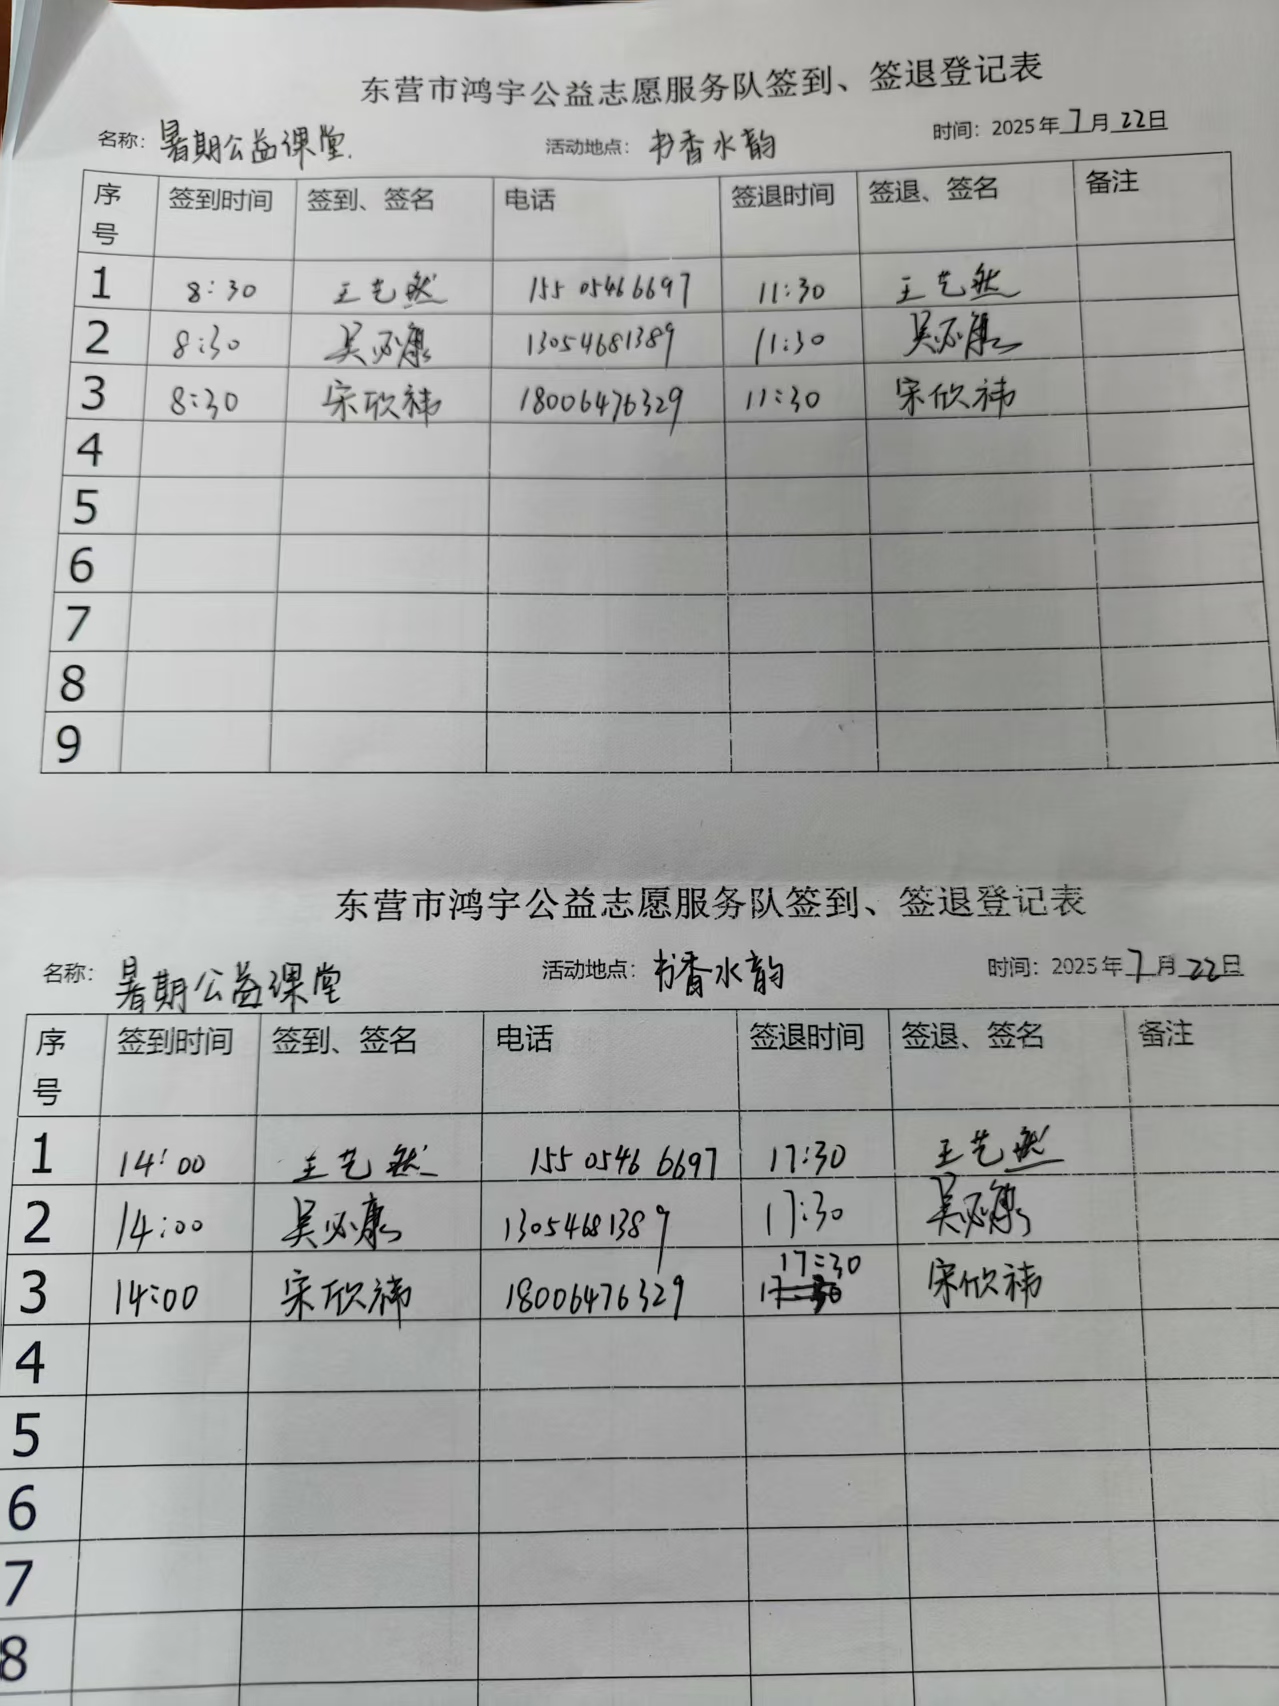 东营市鸿宇公益志愿服务队签到、签退登记表
名称：暑期公益课堂. 活动地点：书香水韵 时间：2025年7月22日
序号 签到时间 签到、签名 电话 签退时间 签退、签名 备注
1 8:30 王艺然 15505466697 11:30 王艺然
2 8:30 吴必康 13054681389 11:30 吴必康
3 8:30 宋欣祎 18006476329 11:30 宋欣祎
4
5
6
7
8
9
东营市鸿宇公益志愿服务队签到、签退登记表
名称：暑期公益课堂 活动地点：书香水韵 时间：2025年7月22日
序号 签到时间 签到、签名 电话 签退时间 签退、签名 备注
1 14:00 王艺然 15505466697 17:30 王艺然
2 14:00 吴必康 13054681389 17:30 吴必康
3 14:00 宋欣祎 18006476329 17:30 宋欣祎
4
5
6
7
8